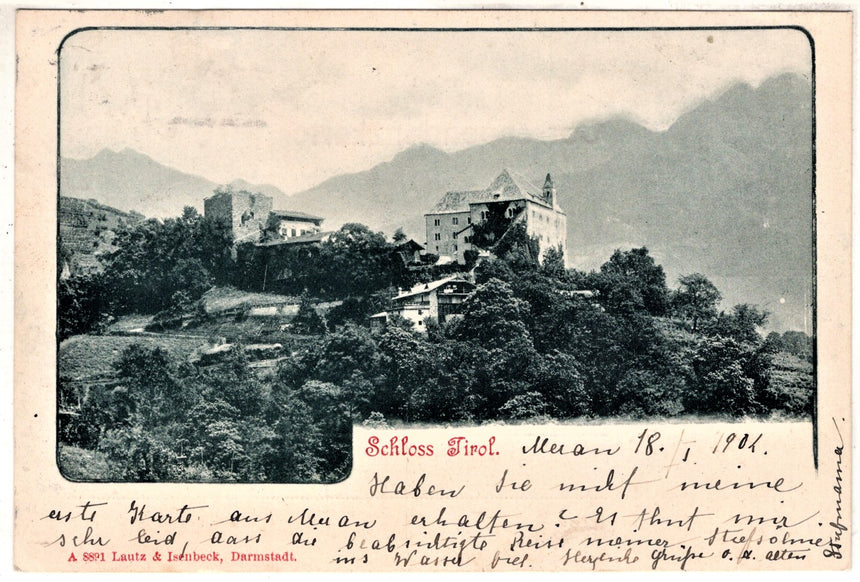 Schloss Tirol.
Meran 18. I 1901.
Haben Sie nicht meine
erste Karte aus Meran erhalten? Es thut mir
sehr leid, dass die beabsichtigte Reise meiner Stiefsöhne
ins Wasser viel. Herzliche Grüße v. d. alten
Stiefmama
A 8891 Lautz & Isenbeck, Darmstadt.